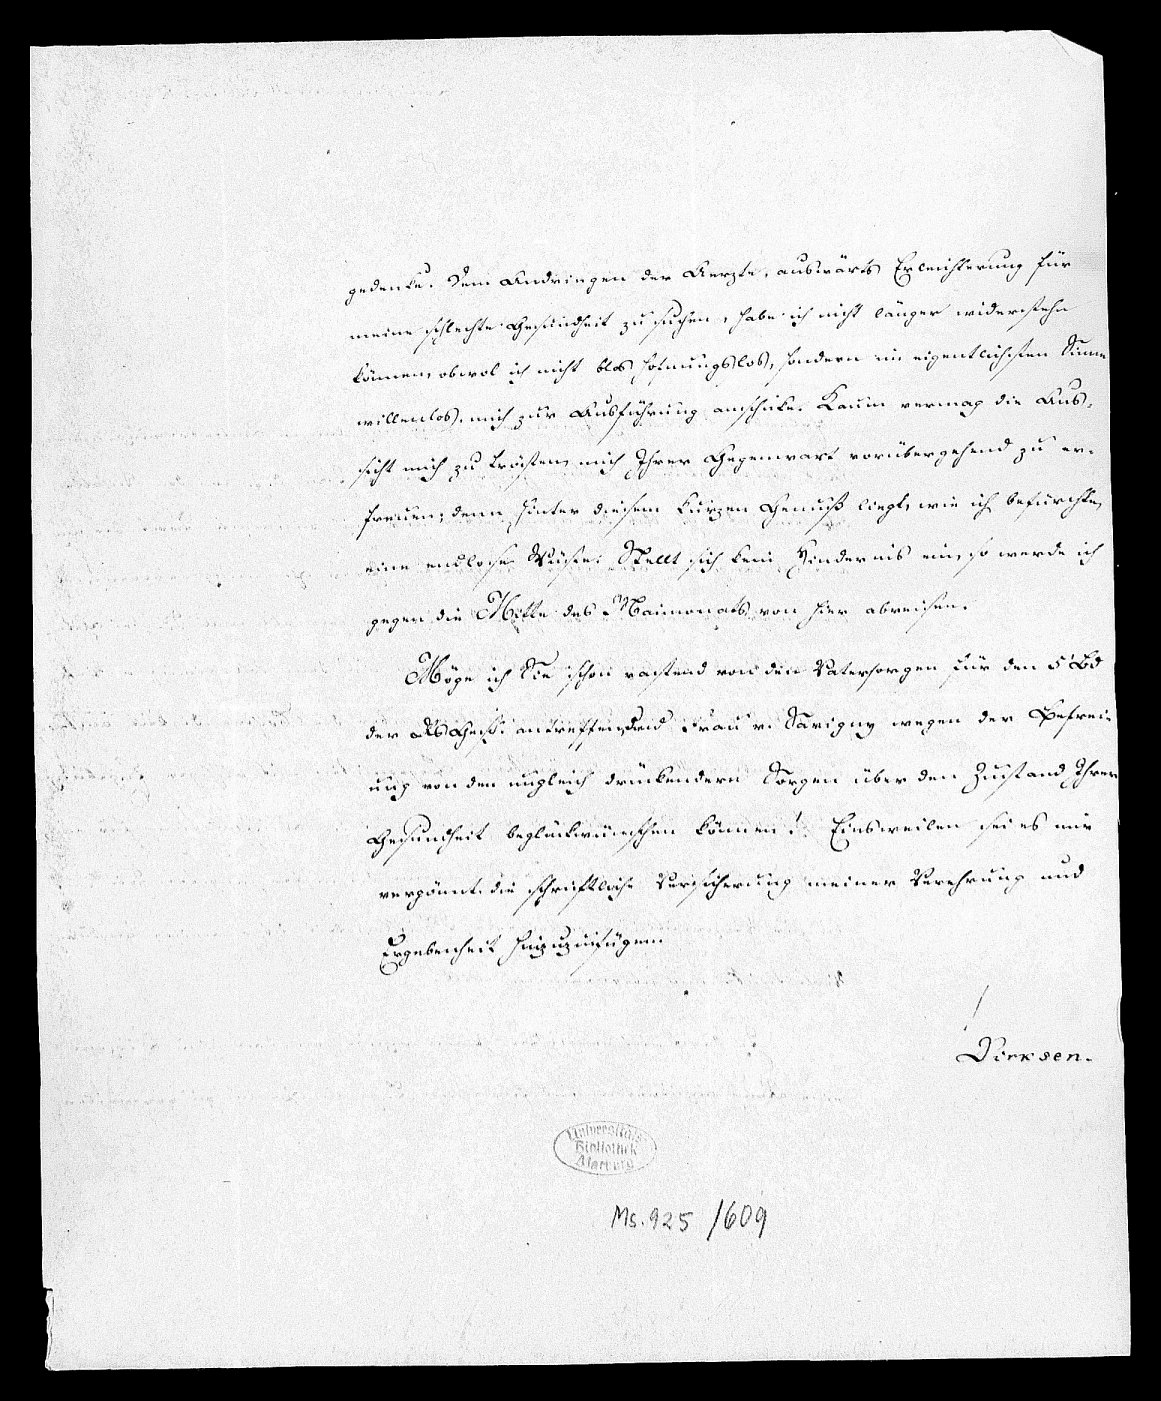 gedenke. Dem Andringen der Aerzte, auswärts Erleichterung für
meine schlechte Gesundheit zu suchen, habe ich nicht länger widerstehn
können, obwol ich nicht blos hofnungslos, sondern im eigentlichsten Sinne
willenlos, mich zur Ausführung anschicke. Kaum vermag die Aus-
sicht mich zu trösten, mich Ihrer Gegenwart vorübergehend zu er-
freuen; denn hinter diesem kurzen Genuß liegt, wie ich befürchte,
eine endlose Wüste. Stellt sich kein Hindernis ein, so werde ich
gegen die Mitte des Maimonats von hier abreisen.
Möge ich Sie schon rastend von den Vatersorgen für den 5 Bd
der RsGesch. antreffen, und Frau v. Savigny wegen der Befrei-
ung von den ungleich drückendern Sorgen über den Zustand Ihrer
Gesundheit beglückwünschen können! Einsweilen sei es mir
vergönnt die schriftliche Versicherung meiner Verehrung und
Ergebenheit hinzuzufügen.
Dirksen.
Universitäts
Bibliothek
Marburg
Ms. 925 /609